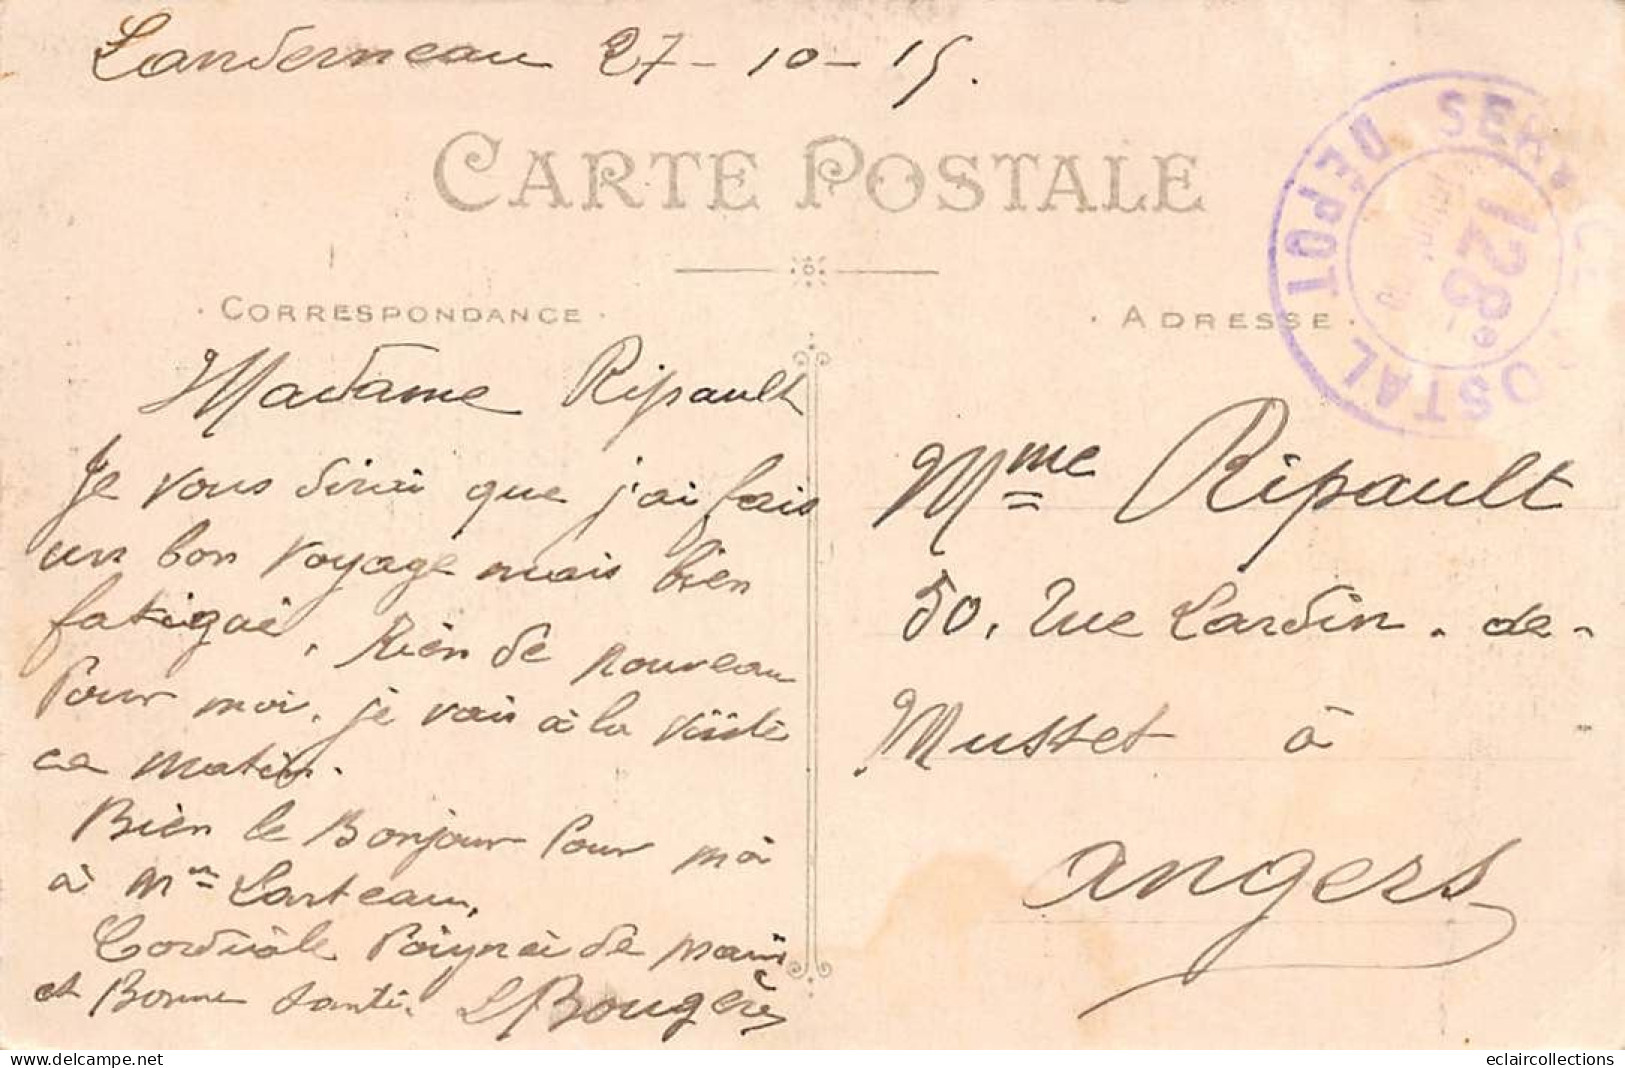 Landerneau 27-10-15.
CARTE POSTALE
SERVICE POSTAL
DÉPÔT
128e
· CORRESPONDANCE ·
· ADRESSE ·
Madame Ripault
Je vous dirai que j'ai fais
un bon voyage mais bien
fatigué. Rien de nouveau
Pour moi. je vais à la visite
ce matin.
Bien le Bonjour Pour moi
à Mme Larteau,
Cordiale Poignée de main
et Bonne santé. L Bougère
Mme Ripault
50, rue Lardin-de-
Musset à
Angers
eclaircollections